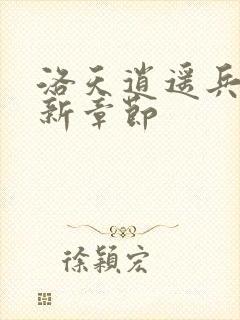 洛天逍遥兵
新章節
徐穎宏